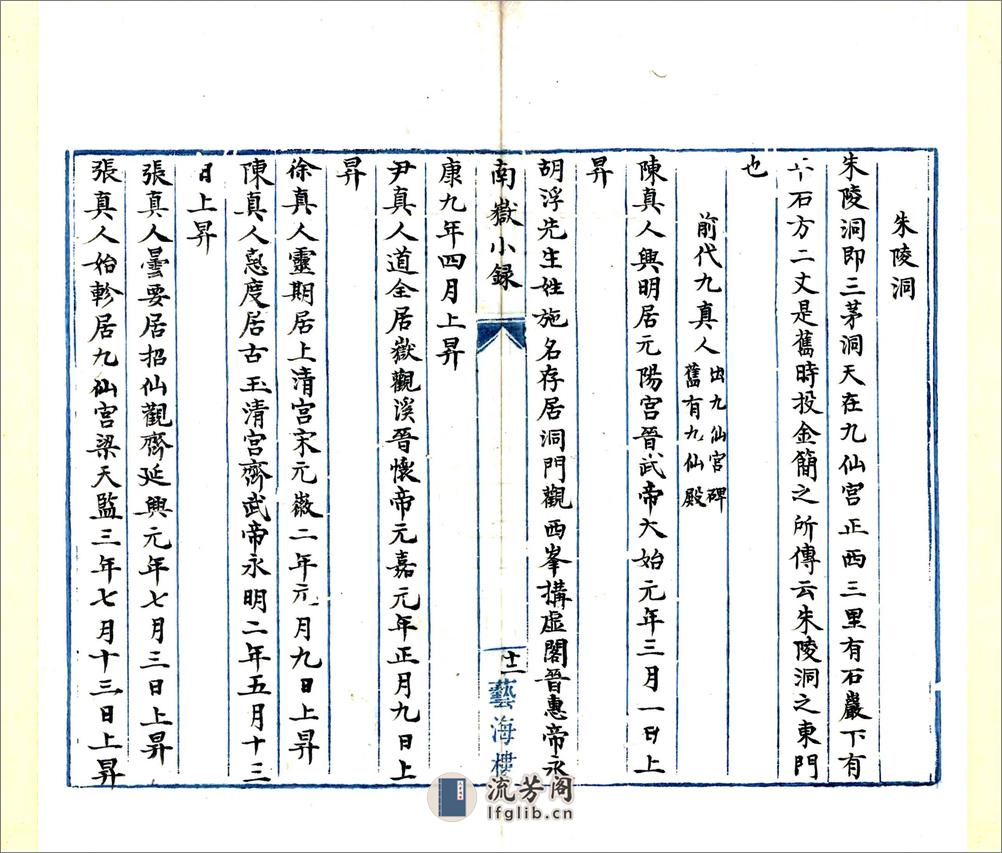 朱陵洞
朱陵洞即三茅洞天在九仙宫正西三里有石巖下有
石方二丈是舊時投金簡之所傳云朱陵洞之東門
也
前代九真人出九仙宫碑
舊有九仙殿
陳真人興明居元陽宫晉武帝大始元年三月一日上
昇
胡浮先生姓施名存居洞門觀西峯搆虛閣晉惠帝永
南嶽小録
十二
藝海樓
康九年四月上昇
尹真人道全居嶽觀溪晉懷帝元嘉元年正月九日上
昇
徐真人靈期居上清宫宋元徽二年元月九日上昇
陳真人惠度居古玉清宫齊武帝永明二年五月十三
日上昇
張真人曇要居招仙觀齊延興元年七月三日上昇
張真人始軫居九仙宫梁天監三年七月十三日上昇
流芳阁
lfglib.cn